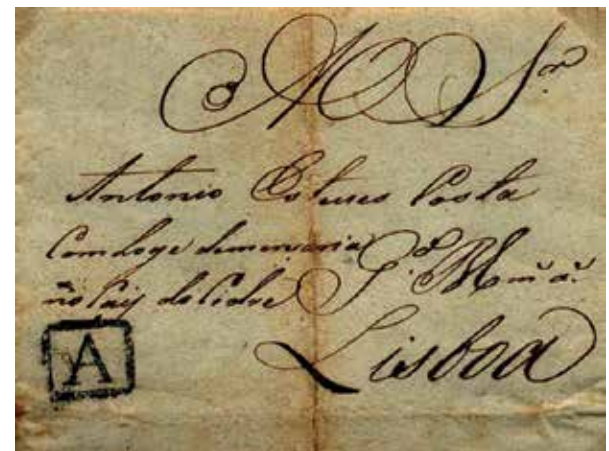 Sr.
Antonio Esteves Costa
Com loge de mersiaria
no Cais do Sodre
Lisboa
A